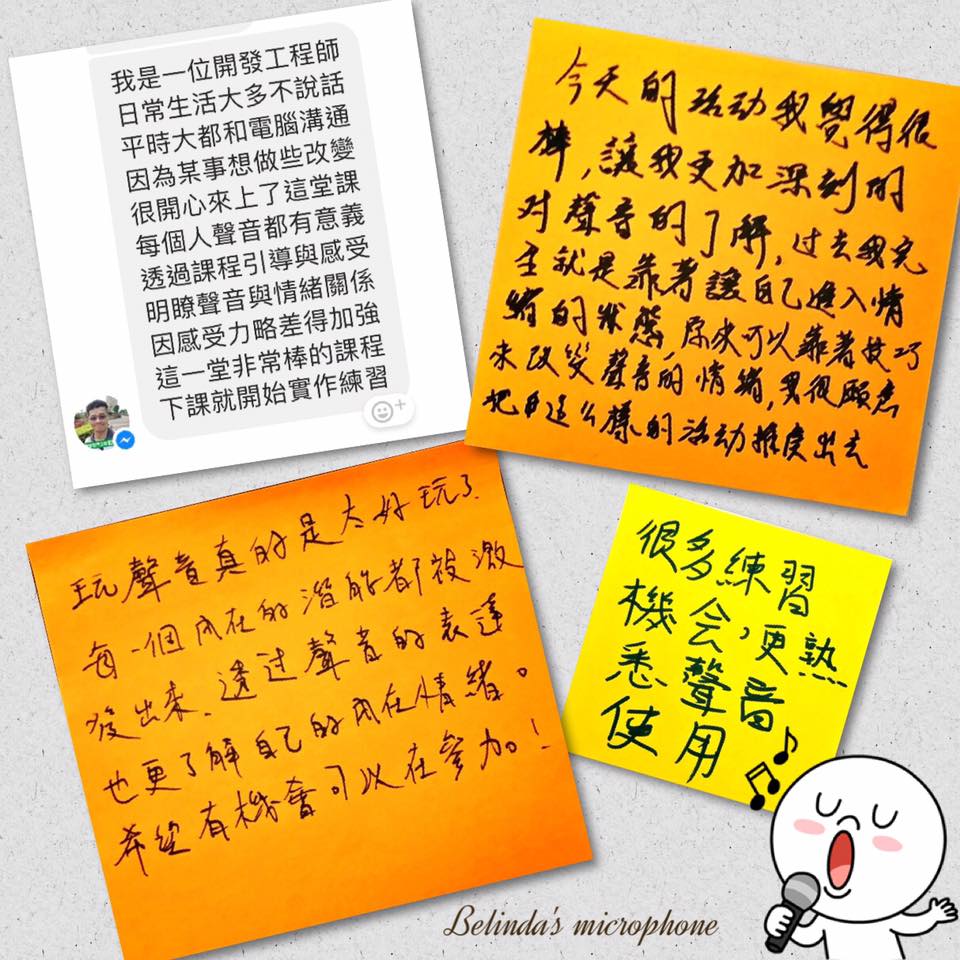 我是一位開發工程師
日常生活大多不說話
平時大都和電腦溝通
因為某事想做些改變
很開心來上了這堂課
每個人聲音都有意義
透過課程引導與感受
明瞭聲音與情緒關係
因感受力略差得加強
這一堂非常棒的課程
下課就開始實作練習
今天的活动我覺得很
棒，讓我更加深刻的
对聲音的了解，过去我完
全就是靠著讓自己進入情
緒的狀態，原來可以靠著技巧
來改变聲音的情緒，
把這么樣的活动推廣出去
玩聲音真的是太好玩了、
每一個內在的潛能都被激
發出來、透过聲音的表達
也更了解自己的內在情緒。
希望有機會可以在參加。！
很多練習
機会，更熟
悉聲音
使用
Belinda's microphone